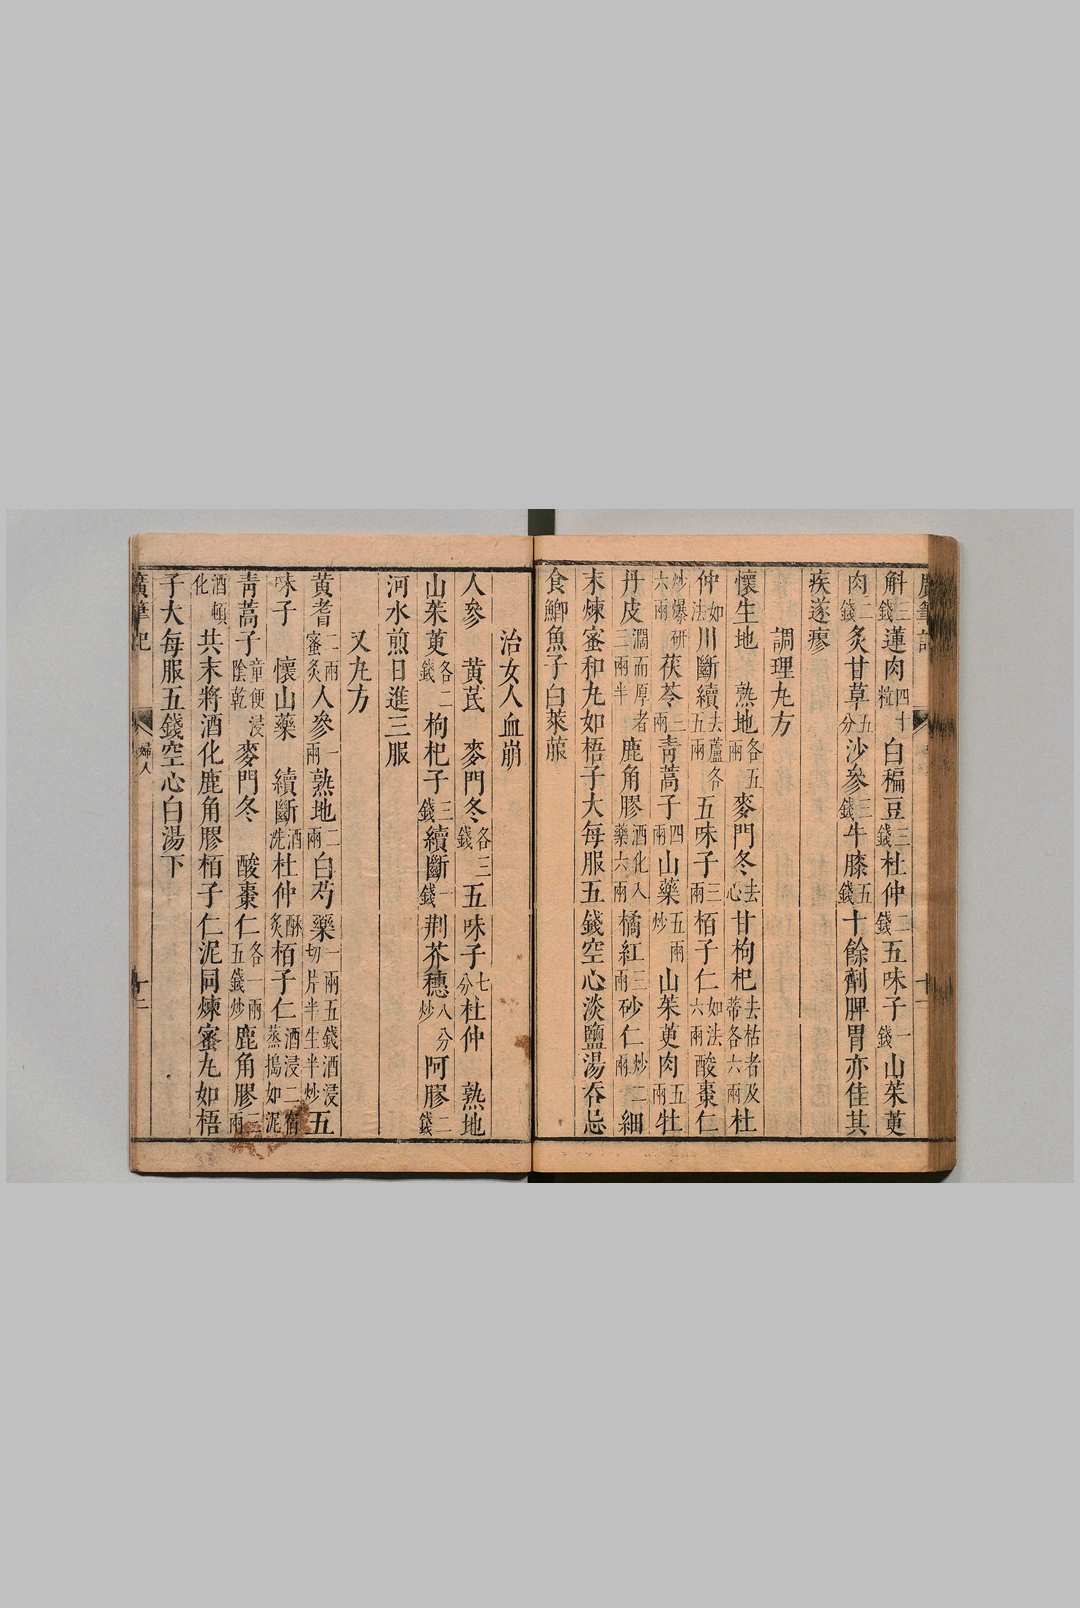 斛三錢蓮肉四十粒白稨豆三錢杜仲二錢五味子一錢山茱萸
肉二錢炙甘草五分沙參三錢牛膝五錢十餘劑脾胃亦佳其
疾遂瘳
調理丸方
懷生地 熟地各五兩麥門冬去心甘枸杞去枯者及蒂各六兩杜
仲如法川斷續去蘆各五兩五味子三兩栢子仁如法六兩酸棗仁
炒爆研六兩茯苓三兩靑蒿子四兩山藥五兩炒山茱萸肉五兩牡
丹皮濶而厚者三兩半鹿角膠酒化入藥六兩橘紅三兩砂仁炒二兩細
末煉蜜和丸如梧子大每服五錢空心淡鹽湯吞忌
食鯽魚子白萊菔
治女人血崩
人參 黃芪 麥門冬各三錢五味子七分杜仲 熟地
山茱萸各二錢枸杞子三錢續斷一錢荆芥穗八分炒阿膠二錢
河水煎日進三服
又丸方
黃耆二兩蜜炙人參一兩熟地二兩白芍藥一兩五錢酒浸切片半生半炒五
味子 懷山藥 續斷酒洗杜仲酥炙栢子仁酒浸二宿蒸搗如泥
靑蒿子童便浸陰乾麥門冬 酸棗仁各一兩五錢炒鹿角膠二兩
酒頓化共末將酒化鹿角膠栢子仁泥同煉蜜丸如梧
子大每服五錢空心白湯下
廣筆記
婦人
十二